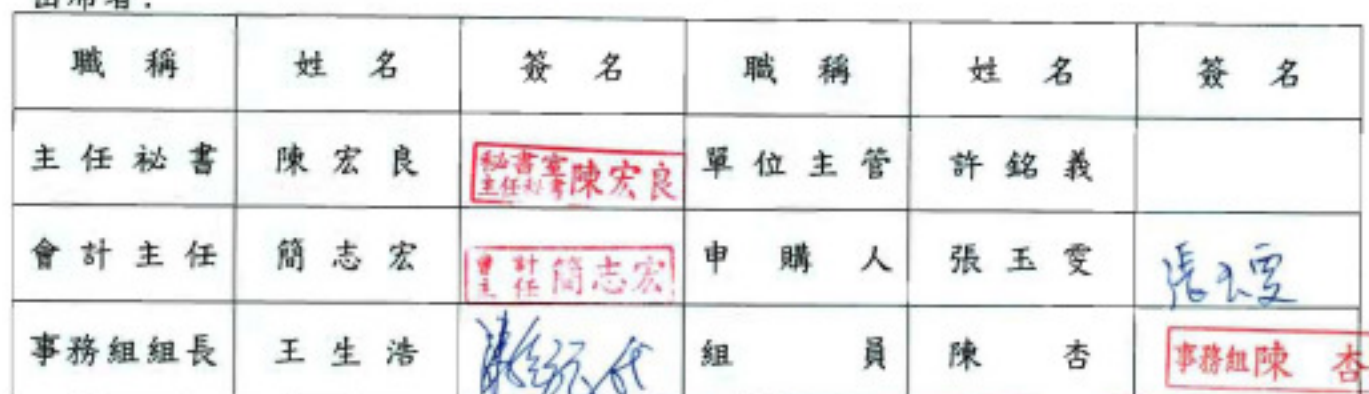 出席者：
職 稱 姓 名 簽 名 職 稱 姓 名 簽 名
主任秘書 陳宏良 秘書室主任秘書陳宏良 單位主管 許銘義
會計主任 簡志宏 會計主任簡志宏 申購人 張玉雯 張玉雯
事務組組長 王生浩 組員 陳杏 事務組陳杏